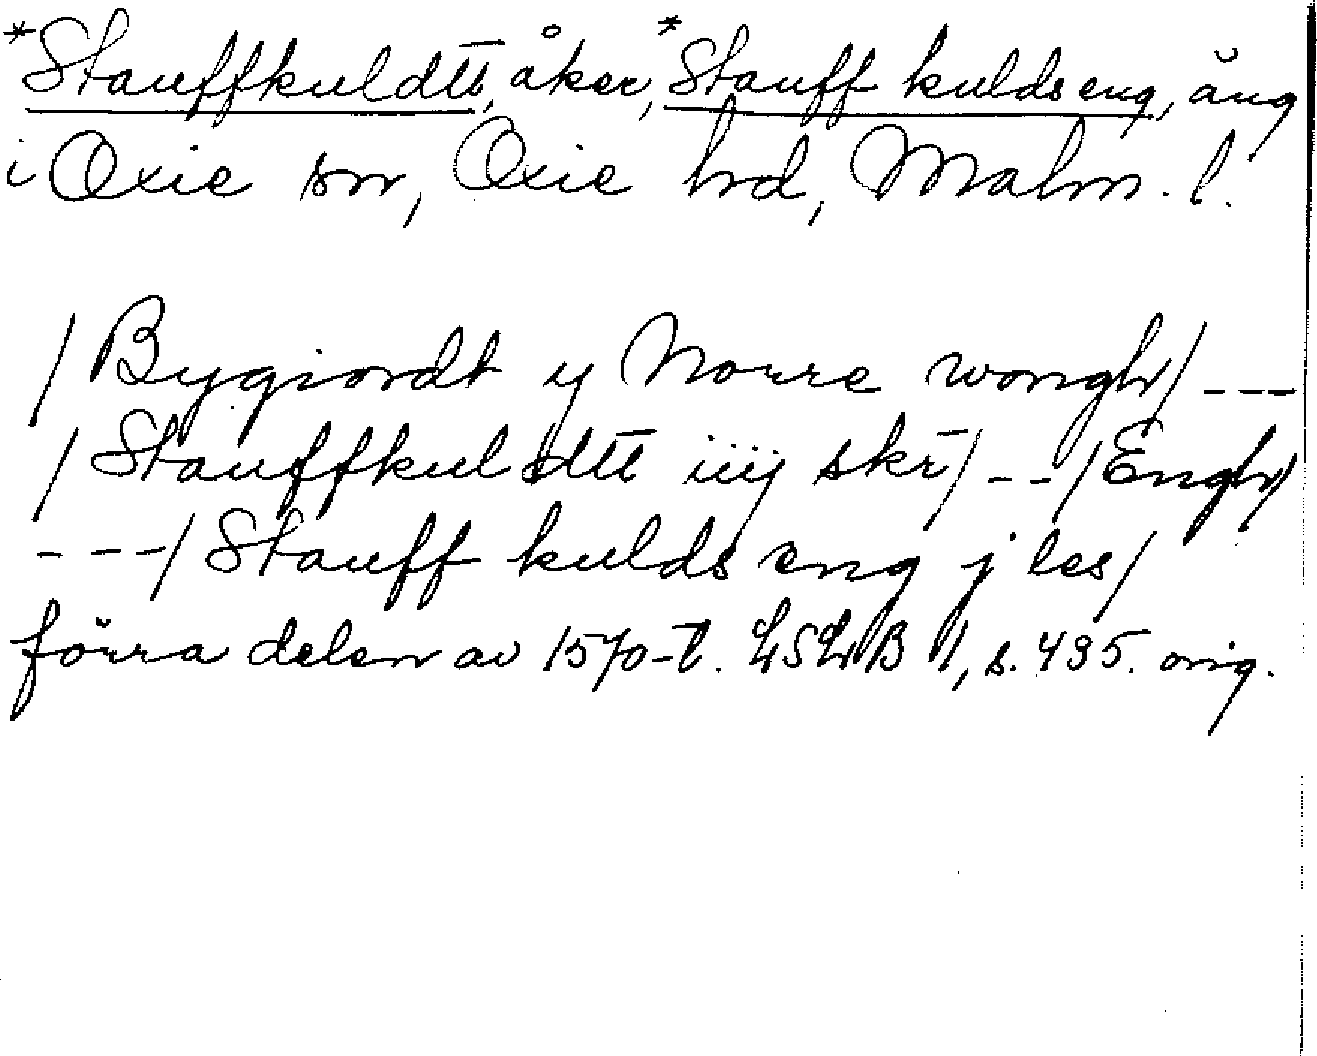 *Stauffkuldtt, åker, *Stauff kulds eng, äng
i Oxie sn, Oxie hd, Malm. l.
/Bygiordt y Norre wongh/ ---
/Stauffkuldtt iiij skr̄/ --/Engh/
---/Stauff kulds eng j les/
förra delen av 1570-t. LSLB I, s. 495. orig.